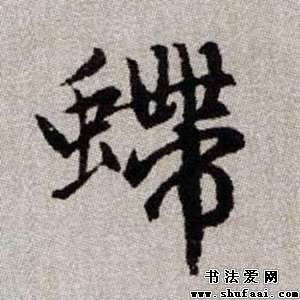 螮
书法爱网
www.shufaai.com